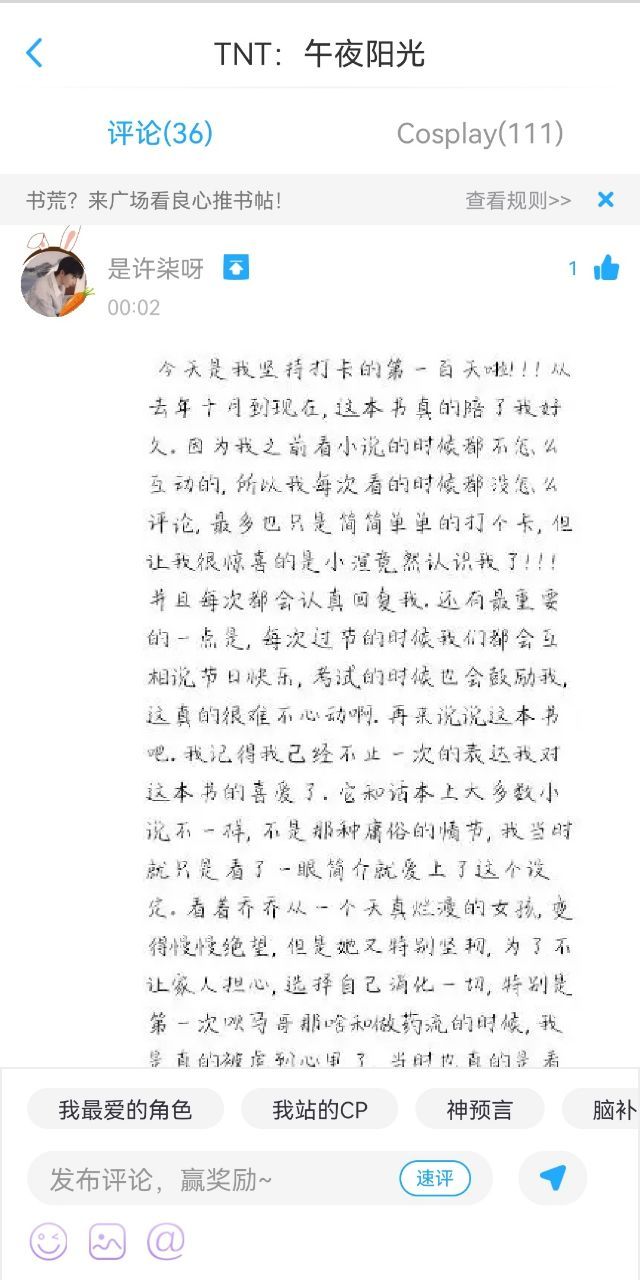 TNT：午夜阳光
评论(36)
Cosplay(111)
书荒？来广场看良心推书帖！
查看规则>>
是许柒呀
1
00:02
今天是我坚持打卡的第一百天啦!!!从
去年十月到现在,这本书真的陪了我好
久.因为我之前看小说的时候都不怎么
互动的,所以我每次看的时候都没怎么
评论,最多也只是简简单单的打个卡,但
让我很惊喜的是小渲竟然认识我了!!!
并且每次都会认真回复我.还有最重要
的一点是,每次过节的时候我们都会互
相说节日快乐,考试的时候也会鼓励我,
这真的很难不心动啊.再来说说这本书
吧.我记得我已经不止一次的表达我对
这本书的喜爱了.它和话本上大多数小
说不一样,不是那种庸俗的情节,我当时
就只是看了一眼简介就爱上了这个设
定.看着乔乔从一个天真烂漫的女孩,变
得慢慢绝望,但是她又特别坚韧,为了不
让家人担心,选择自己消化一切,特别是
第一次呗马哥那啥和做药流的时候,我
是真的被虐到心里了.当时也真的是看
我最爱的角色
我站的CP
神预言
脑补
发布评论，赢奖励~
速评